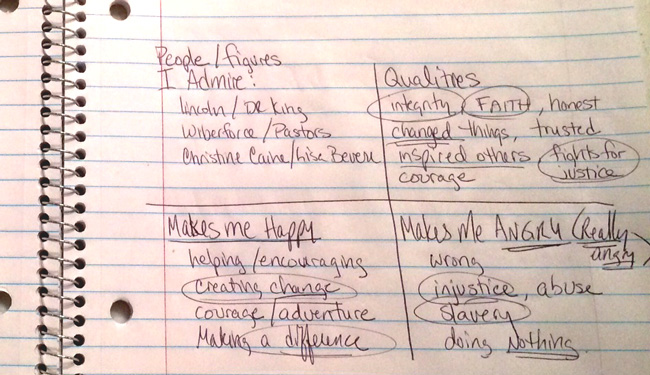 People/figures
I Admire:
Lincoln/DR King
Wilberforce/Pastors
Christine Caine/Lisa Bevere
Qualities
integrity, FAITH, honest
changed things, trusted
inspired others
fights for
justice
courage
Makes me Happy
helping/encouraging
creating change
courage/adventure
Making a difference
Makes Me ANGRY (Really
angry)
wrong
injustice, abuse
slavery
doing Nothing.